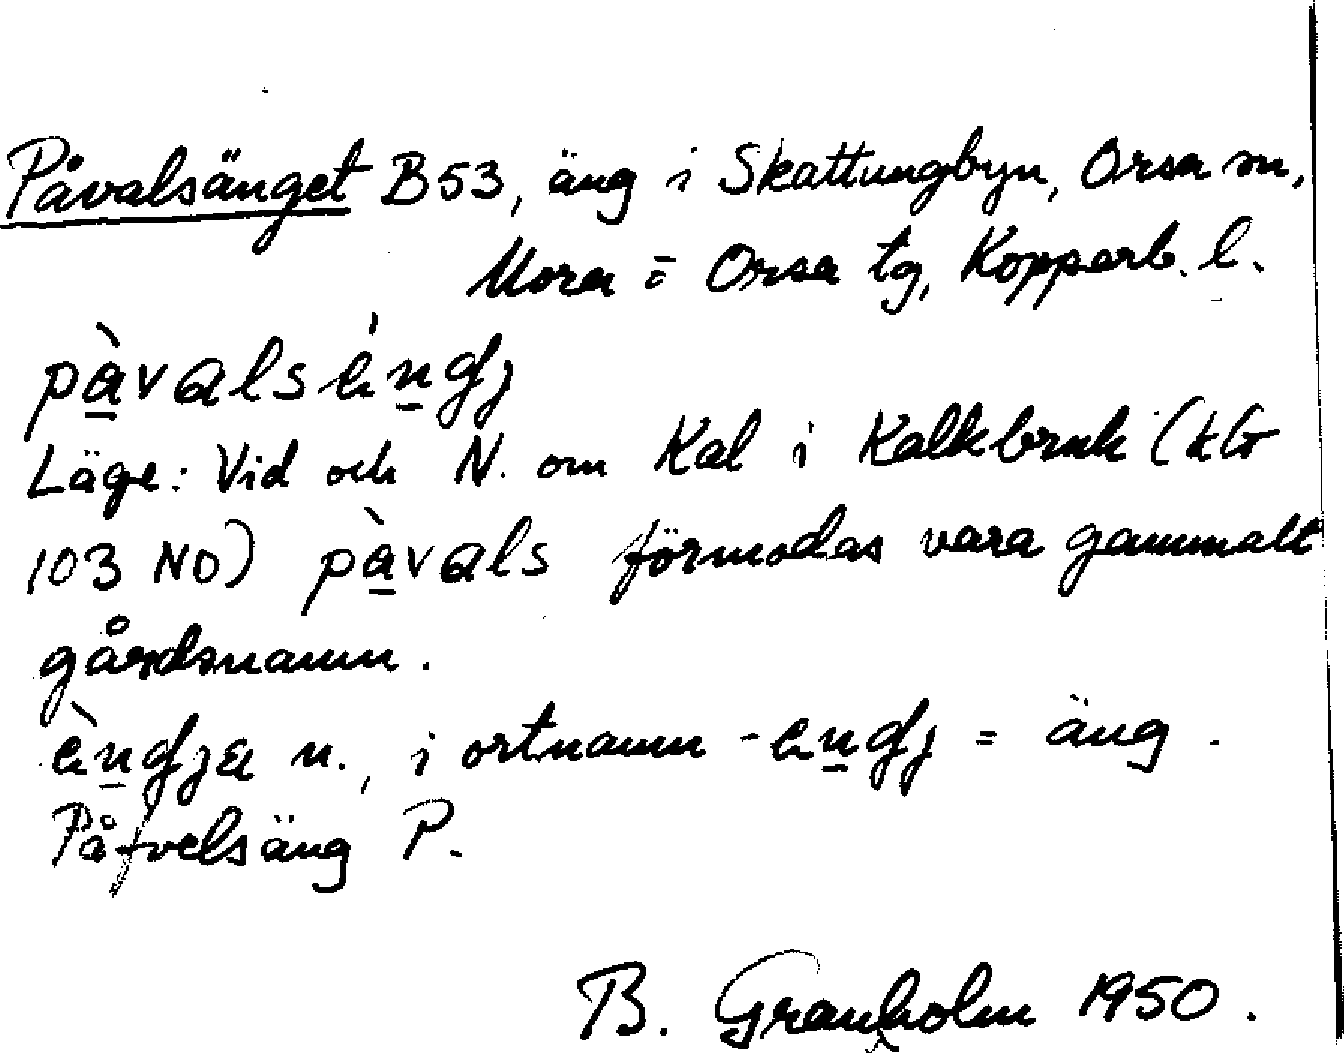 Påvalsänget B53, äng i Skattungbyn, Orsa sn,
Mora = Orsa tg, Kopparb. l.
pàvalsèngj
Läge: Vid och N. om Kal i Kalkbruk (kG
103 NO) pàvals förmodas vara gammalt
gårdsnamn.
èngja n., i ortnamn -engj = äng.
Påfvelsäng P.
B. Granholm 1950.